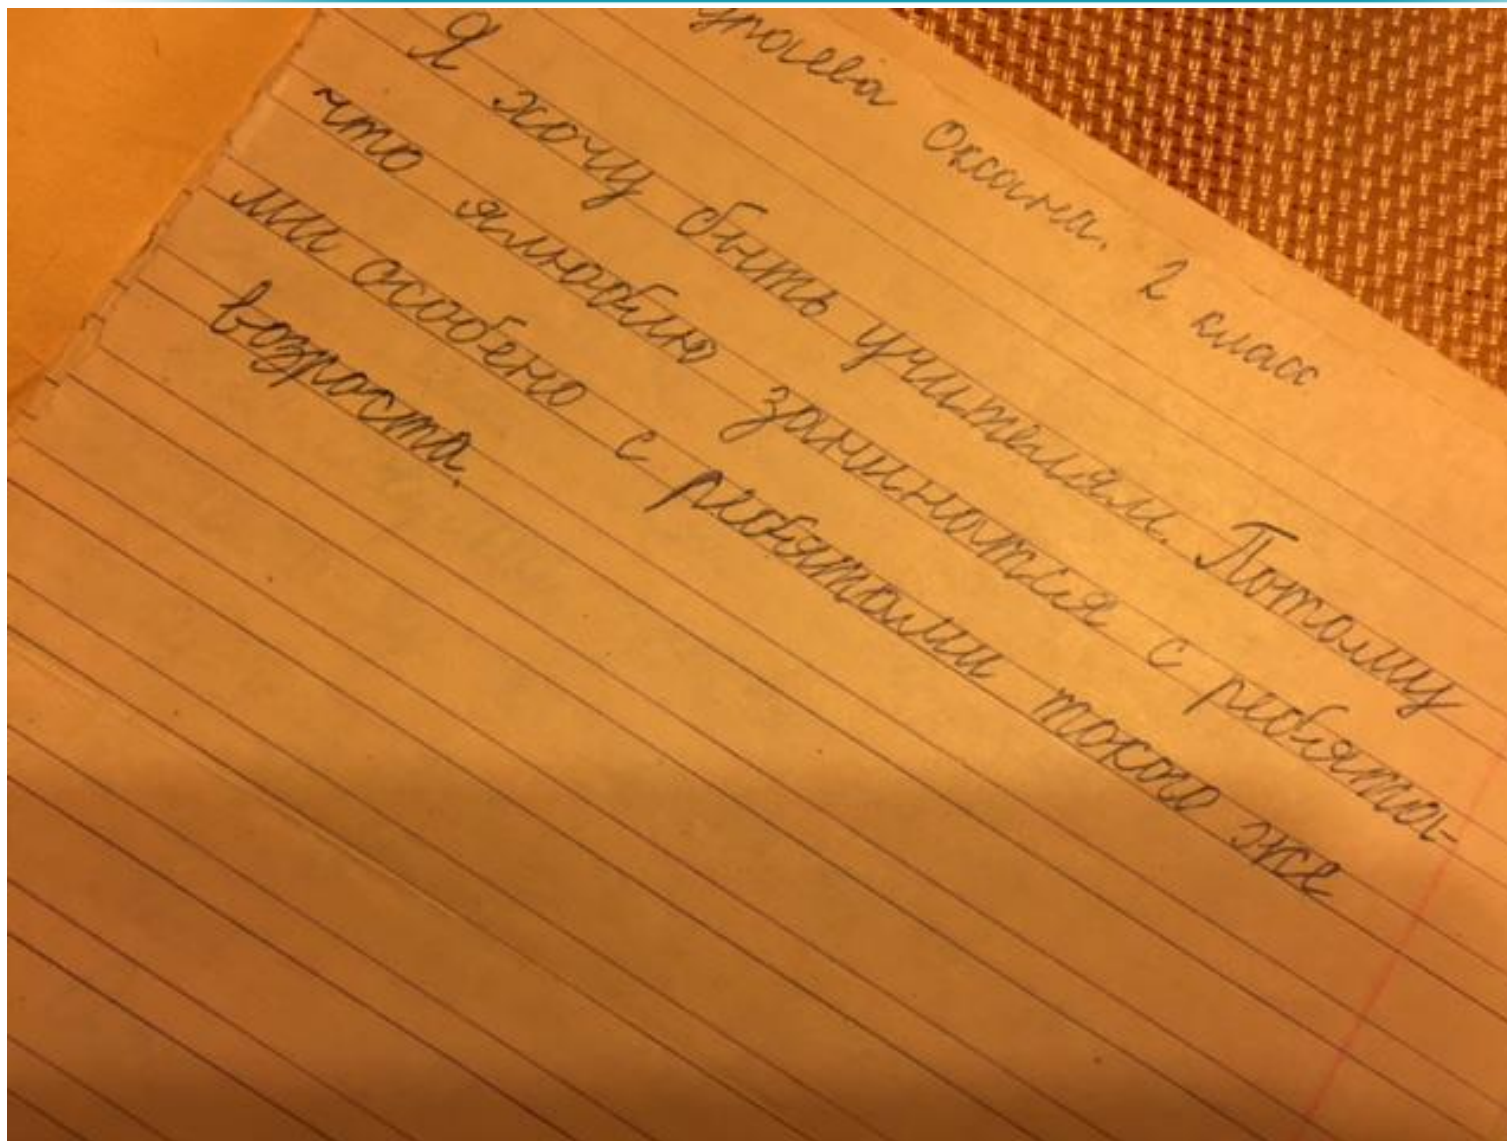 Оксана. 2 класс
Я хочу быть учителям. Потому
что ялюблю заниматся с ребята-
ми особено с ребятами такого же
возроста.